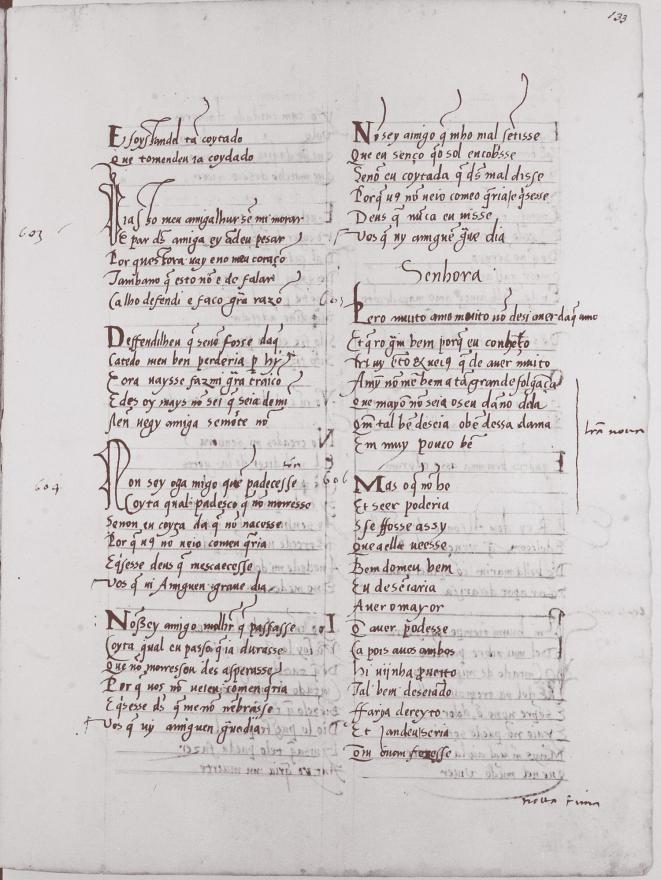 133
E foyssandel tã coytado
Que tomendeu ia coydado
603
Foiasso meu amigalhur sẽ mi morar
E par ds amiga ey ẽdeu pesar
Por ques fora vay eno meu coraçõ
Tambano q̃ esto nõ e de falar
Ca lho defendi e faço grã razõ
Deffendilheu q̃ senõ fosse daq̃
Ca todo meu ben perderia p hy
E ora vaysse fazmi grã traiçõ
E des oy mays nõ sei q̃ seia demi
Nen vegy amiga semorte nõ
604
Non soy oga migo que padecesse
Coyta qual padesco q̃ nõ moresse
Senon eu coyta da q̃ nõ nacesse
Por q̃ u9 nõ veio comen q̃ria
E q̃sesse deus q̃ mescaecesse
Vos q̃ ui Amiguen graue dia
Nossey amigo molhr q̃ passasse
Coyta qual eu passo q̃ ia durasse
Que nõ moresse ou des asperasse
Por q̃ vos nõ veieu comen q̃ria
E q̃sesse ds q̃ me nõ nẽbrasse
Vos q̃ uy amiguen graue dia
Nõ sey amigo q̃ mho mal sẽtisse
Que eu senço q̃o sol encobisse
Senõ eu coytada q̃ ds mal disse
Porq̃ u9 nõ veio comeo q̃ria
Deus q̃ nũca eu uisse
Vos q̃ uy amigue graue dia
Senhora
605
Pero muito amo muito nõ desi auer daq̃ amo
Et q̃ro grã bem porq̃ eu conheço
q̃ de auer muito
Amy nõ me bem a tã grande folgãça
Que mayor nõ seia oseu dano dela
Qm tal bẽ deseia obẽ dessa dama
Em muy pouco bẽ
letra nova
606
Mas o q̃ nõ he
Et seer poderia
Sse ffosse assy
Que aella veesse
Bem domeu bem
Eu deseiaria
Auer o mayor
Q̃ auer podesse
Ca pois auos ambos
hi uijnha proueito
Tal bem deseiado
ffaria dereyto
Et sandeu seria
Qm õ nom fezesse
nõ tta fiim